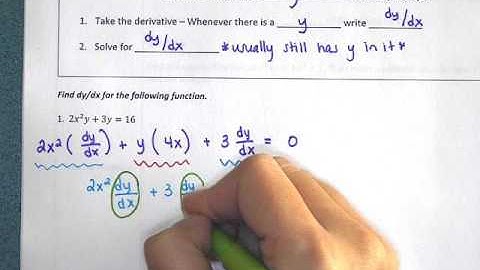 1. Take the derivative – Whenever there is a y write dy/dx
2. Solve for dy/dx *usually still has y in it*
Find dy/dx for the following function.
1. 2x²y + 3y = 16
2x² (dy/dx) + y (4x) + 3 dy/dx = 0
2x² dy/dx + 3 dy